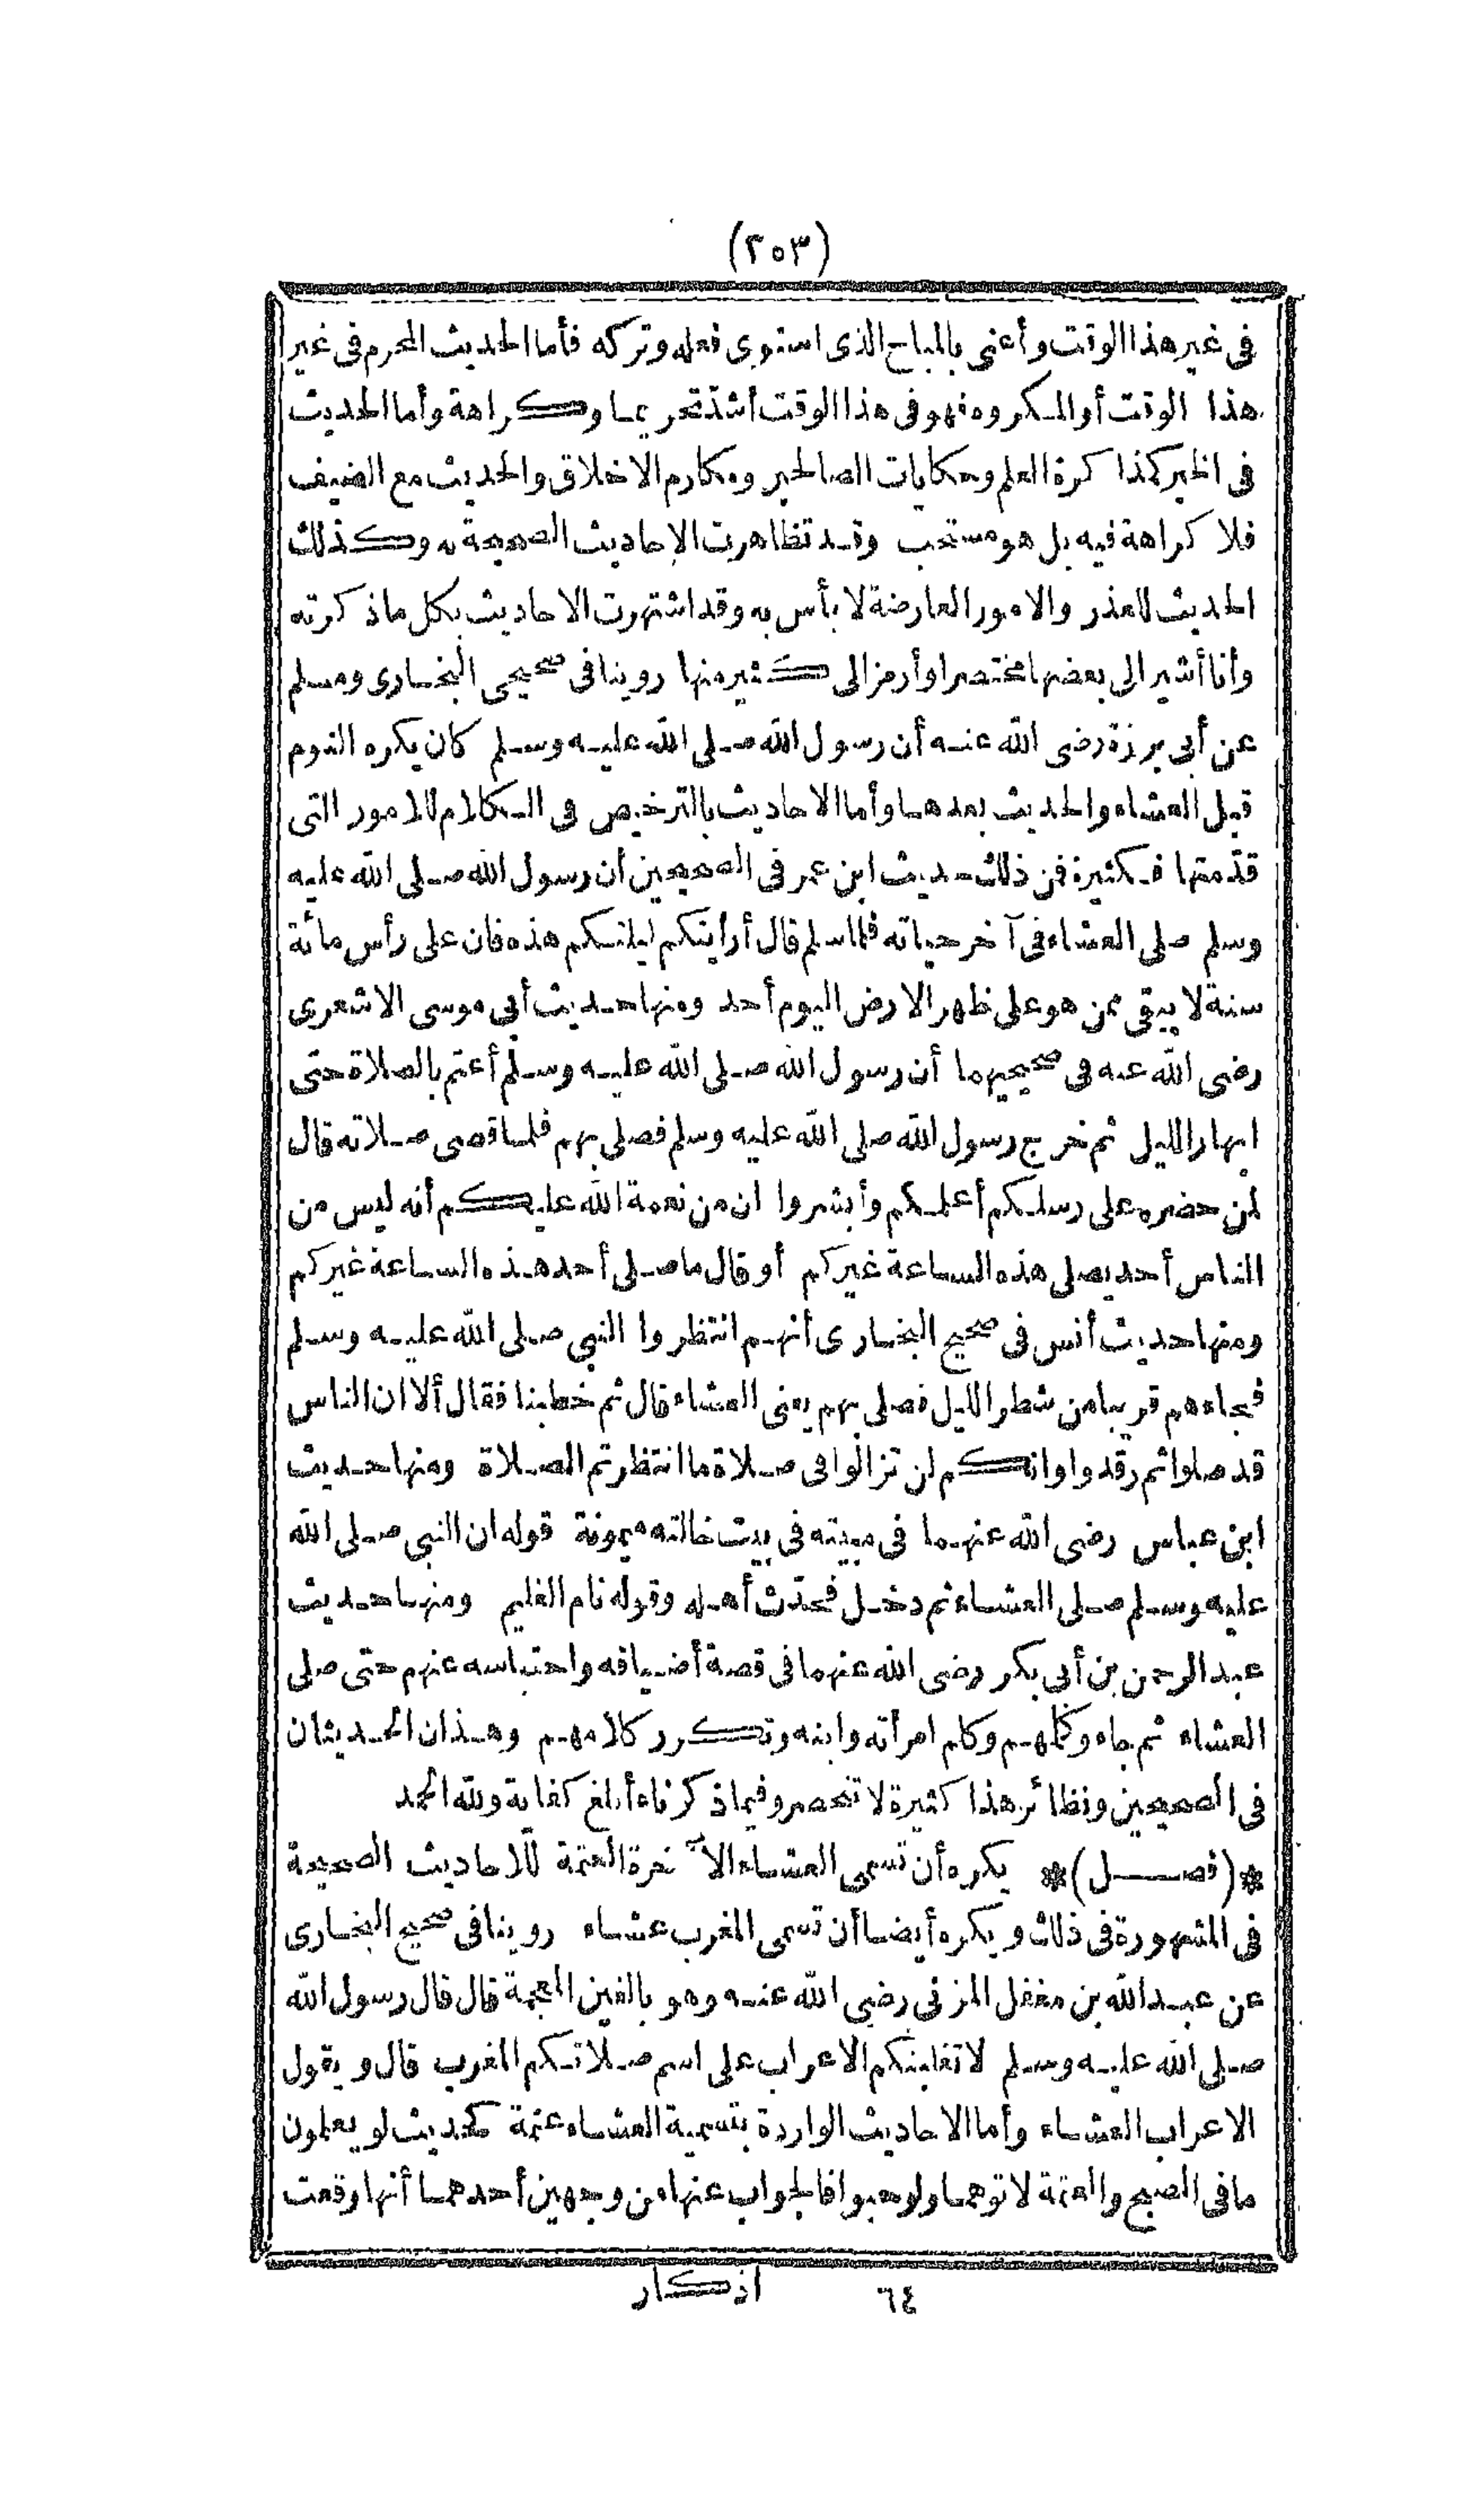 (٢٥٣)
فى غير هذا الوقت وأعنى بالمباح الذى استوى فعله وتركه فأما الحديث المحرم فى غير
هذا الوقت أو المكروه فهو فى هذا الوقت أشدّ تحريما وكراهة وأما الحديث
فى الخير كمذا كرة العلم وحكايات الصالحين ومكارم الاخلاق والحديث مع الضيف
فلا كراهة فيه بل هو مستحب وقد تظاهرت الاحاديث الصحيحة به وكذلك
الحديث للعذر والامور العارضة لا بأس به وقد اشتهرت الاحاديث بكل ما ذكرته
وأنا أشير الى بعضها مختصرا وأرمز الى كثير منها روينا فى صحيحى البخارى ومسلم
عن أبى برزة رضى الله عنه أن رسول الله صلى الله عليه وسلم كان يكره النوم
قبل العشاء والحديث بعدها وأما الاحاديث بالترخيص فى الكلام للامور التى
قدّمتها فكثيرة فمن ذلك حديث ابن عمر فى الصحيحين أن رسول الله صلى الله عليه
وسلم صلى العشاء فى آخر حياته فلما سلم قال أرايتكم ليلتكم هذه فان على رأس مائة
سنة لا يبقى ممن هو على ظهر الارض اليوم أحد ومنها حديث أبى موسى الاشعرى
رضى الله عنه فى صحيحيهما أن رسول الله صلى الله عليه وسلم أعتم بالصلاة حتى
ابهار الليل ثم خرج رسول الله صلى الله عليه وسلم فصلى بهم فلما قضى صلاته قال
لمن حضره على رسلكم أعلمكم وأبشروا ان من نعمة الله عليكم أنه ليس من
الناس أحد يصلى هذه الساعة غيركم أو قال ما صلى أحد هذه الساعة غيركم
ومنها حديث أنس فى صحيح البخارى أنهم انتظروا النبى صلى الله عليه وسلم
فجاءهم قريبا من شطر الليل فصلى بهم يعنى العشاء قال ثم خطبنا فقال ألا ان الناس
قد صلوا ثم رقدوا وانكم لن تزالوا فى صلاة ما انتظرتم الصلاة ومنها حديث
ابن عباس رضى الله عنهما فى مبيته فى بيت خالته ميمونة قوله ان النبى صلى الله
عليه وسلم صلى العشاء ثم دخل فحدّث أهله وقوله نام الغليم ومنها حديث
عبد الرحمن بن أبى بكر رضى الله عنهما فى قصة أضيافه واحتباسه عنهم حتى صلى
العشاء ثم جاء وكلمهم وكلم امرأته وابنه وتكرر كلامهم وهذان الحديثان
فى الصحيحين ونظائر هذا كثيرة لا تنحصر وفيما ذكرناه أبلغ كفاية ولله الحمد
*(فصل)* يكره أن تسمى العشاء الآخرة العتمة للاحاديث الصحيحة
فى المشهورة فى ذلك ويكره أيضا أن تسمى المغرب عشاء روينا فى صحيح البخارى
عن عبد الله بن مغفل المزنى رضى الله عنه وهو بالغين المعجمة قال قال رسول الله
صلى الله عليه وسلم لا تغلبنكم الاعراب على اسم صلاتكم المغرب قال ويقول
الاعراب العشاء وأما الاحاديث الواردة بتسمية العشاء عتمة كحديث لو يعلمون
ما فى الصبح والعتمة لا توهما ولو حبوا فالجواب عنها من وجهين أحدهما أنها وقعت
٦٤ اذكار